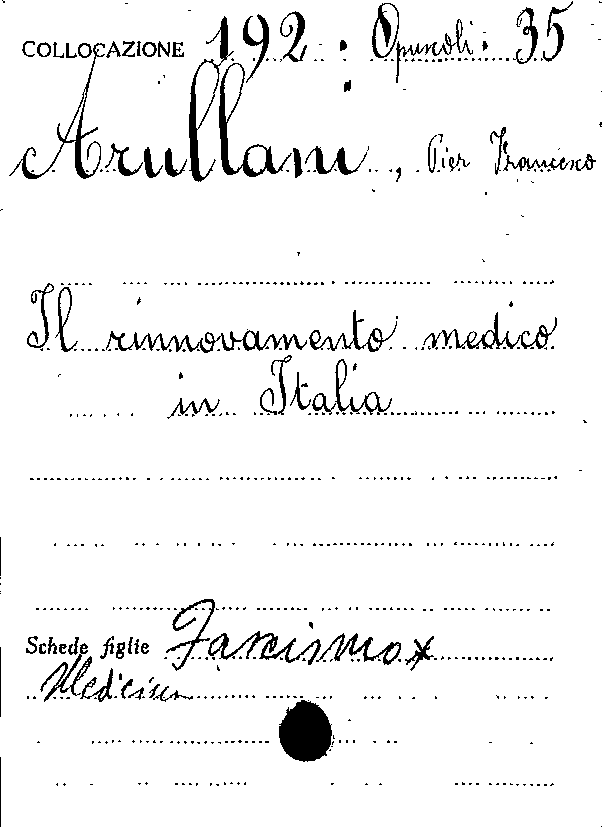 COLLOCAZIONE 192. Opuscoli. 35
Arullani, Pier Francesco
Il rinnovamento medico
in Italia
Schede figlie Fascismo x
Medicina